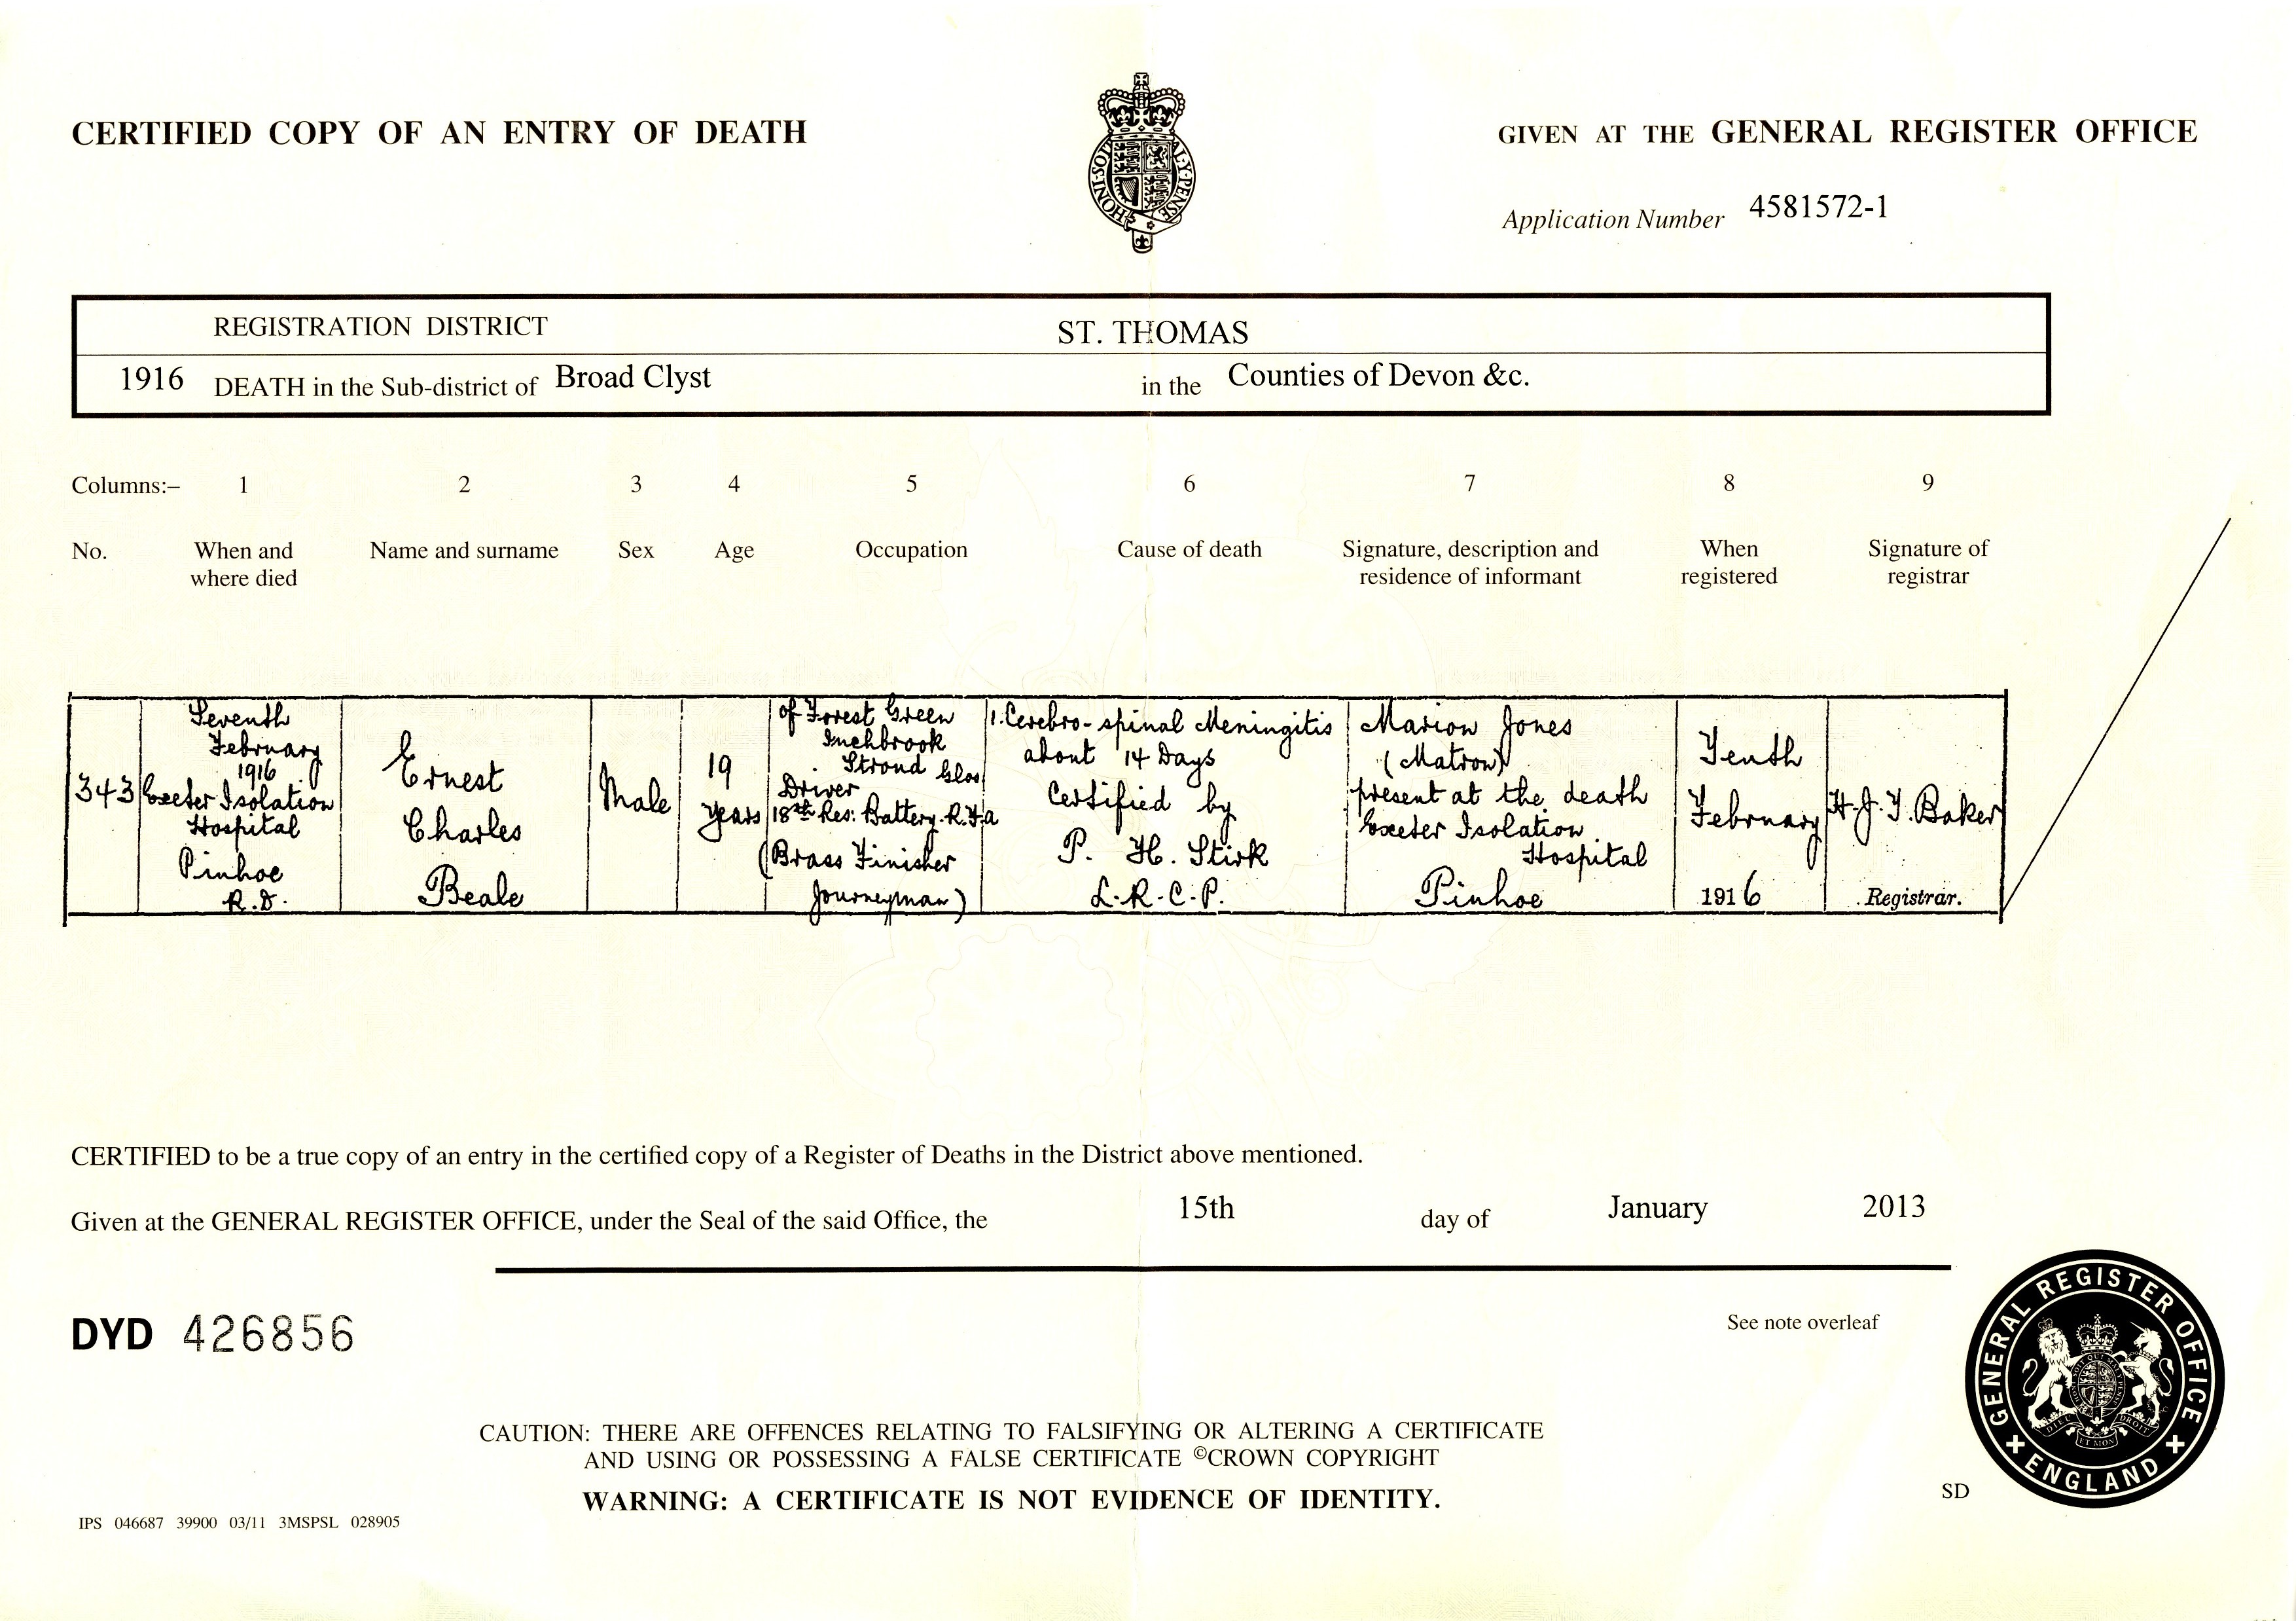 CERTIFIED COPY OF AN ENTRY OF DEATH
HONI·SOI AL·Y·PENSE
GIVEN AT THE GENERAL REGISTER OFFICE
Application Number 4581572-1
REGISTRATION DISTRICT ST. THOMAS
1916 DEATH in the Sub-district of Broad Clyst in the Counties of Devon &c.
Columns:– 1 2 3 4 5 6 7 8 9
No.
When and
where died
Name and surname
Sex
Age
Occupation
Cause of death
Signature, description and
residence of informant
When
registered
Signature of
registrar
343
Seventh
February
1916
Exeter Isolation
Hospital
Pinhoe
R.D.
Ernest
Charles
Beale
Male
19
years
of Forest Green
Inchbrook
Stroud Glos
Driver
18th Res: Battery. R.F.a
(Brass Finisher
Journeyman)
1. Cerebro-spinal Meningitis
about 14 Days
Certified by
P. H. Stirk
L.R.C.P.
Marion Jones
(Matron)
present at the death
Exeter Isolation
Hospital
Pinhoe
Tenth
February
1916
H.J.T. Baker
Registrar.
CERTIFIED to be a true copy of an entry in the certified copy of a Register of Deaths in the District above mentioned.
Given at the GENERAL REGISTER OFFICE, under the Seal of the said Office, the 15th day of January 2013
DYD 426856
See note overleaf
GENERAL REGISTER OFFICE
ENGLAND
DIEU ET MON DROIT
CAUTION: THERE ARE OFFENCES RELATING TO FALSIFYING OR ALTERING A CERTIFICATE
AND USING OR POSSESSING A FALSE CERTIFICATE ©CROWN COPYRIGHT
WARNING: A CERTIFICATE IS NOT EVIDENCE OF IDENTITY.
SD
IPS 046687 39900 03/11 3MSPSL 028905